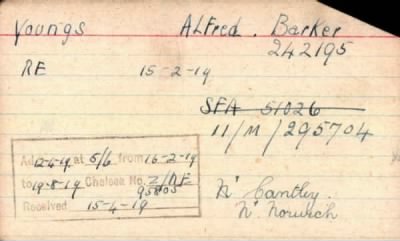 Youngs Alfred. Barker
242195
RE 15-2-19
SFA 51026
11/M/295704
Ad 12-4-19 at 5/6 from 16-2-19
to 19-8-19 Chelsea No. 2/NE
95805
Received 15-4-19
Nr Cantley.
Nr Norwich